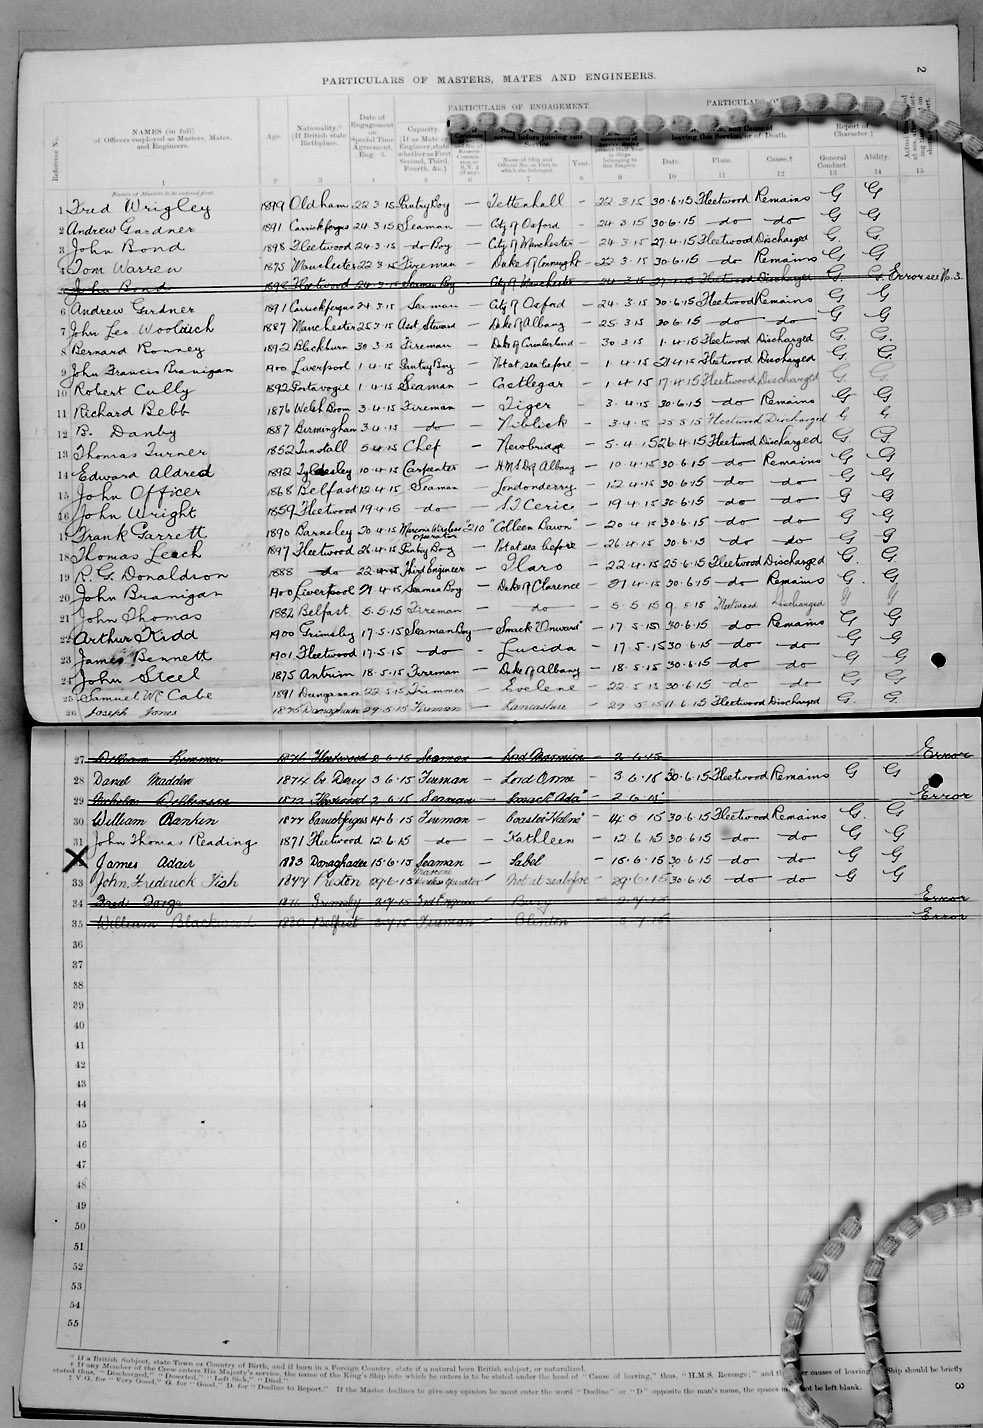 2
PARTICULARS OF MASTERS, MATES AND ENGINEERS.
PARTICULARS OF ENGAGEMENT.
Reference No.
NAMES (in full) of Officers employed as Masters, Mates, and Engineers.
Age.
Nationality.* (If British state Birthplace.
Date of Engagement on Special Time Agreement, Eng. 3.
Capacity.
Name of Ship and Official No. or Port to which she belonged.
Year.
Date.
Place.
Cause.†
General Conduct.
Ability.
1 2 3 4 5 6 7 8 9 10 11 12 13 14 15
Names of Masters to be entered first.
1 Fred Wrigley 1899 Oldham 22 3 15 Pantry Boy — Tettenhall - 22 3 15 30.6.15 Fleetwood Remains G G
2 Andrew Gardner 1891 Carrickfergus 24 3 15 Seaman — City of Oxford - 24 3 15 30.6.15 —do —do— G G
3 John Bond 1898 Fleetwood 24.3.15 —do Boy — City of Manchester - 24 3 15 27.4.15 Fleetwood Discharged G. G.
4 Tom Warren 1875 Manchester 22 3 15 Fireman — Duke of Connaught - 22 3 15 30.6.15 —do Remains G G
John Bond 1898 Fleetwood 24.3.15 Seaman Boy City of Manchester - 24 3 15 Fleetwood Discharged G. G. Error see No. 3.
6 Andrew Gardner 1891 Carrickfergus 24.3.15 Seaman — City of Oxford - 24.3.15 30.6.15 Fleetwood Remains G G
7 John Leo 1887 Manchester 25 3 15 Asst. Steward — Duke of Albany - 25.3.15 30.6.15 —do— —do— G G
8 Bernard Ronney 1892 Blackburn 30 3 15 Fireman — Duke of Cumberland - 30 3.15 1.4.15 Fleetwood Discharged G. G.
9 John Francis Branigan 1900 Liverpool 1.4.15 Pantry Boy — Not at sea before - 1.4.15 21.4.15 Fleetwood Discharged G. G.
10 Robert Cully 1892 Portavogie 1.4.15 Seaman — Castlegar - 1.4.15 17.4.15 Fleetwood Discharged G. G.
11 Richard Bebb 1876 Welsh 3.4.15 Fireman — Tiger - 3.4.15 30.6.15 —do— Remains G G
12 B. Danby 1887 Birmingham 3.4.15 —do— — Niblick - 3.4.15 Fleetwood Discharged G G
13 Thomas Turner 1852 Tunstall 5.4.15 Chef — Newbridge - 5.4.15 26.4.15 Fleetwood Discharged G. G.
14 Edward Aldred 1892 Tyldesley 10.4.15 Carpenter — H.M.S D of Albany - 10.4.15 30.6.15 —do— Remains G G
15 John Officer 1868 Belfast 12.4.15 Seaman — Londonderry - 12.4.15 30.6.15 —do— —do— G G
16 John Wright 1859 Fleetwood 19.4.15 —do— — S.T Ceric - 19.4.15 30.6.15 —do— —do— G G
17 Frank Garrett 1890 Barnsley 20.4.15 Marconi Wireless Operator 210 "Colleen Bawn" - 20.4.15 30.6.15 —do— —do— G G
18 Thomas Leach 1897 Fleetwood 26.4.15 Pantry Boy — Not at sea before - 26.4.15 30.6.15 —do— —do— G G
19 R. G. Donaldson 1888 —do— 22.4.15 Third Engineer — Ilaro - 22.4.15 25.6.15 Fleetwood Discharged G. G.
20 John Branigan 1900 Liverpool 27.4.15 Seaman Boy — Duke of Clarence - 27.4.15 30.6.15 —do— Remains G G
21 John Thomas 1882 Belfast 5.5.15 Fireman — —do— - 5.5.15 9.5.15 Fleetwood Discharged G G
22 Arthur Kidd 1900 Grimsby 17.5.15 Seaman Boy — Smack "Onward" - 17.5.15 30.6.15 —do— Remains G G
23 James Bennett 1901 Fleetwood 17.5.15 —do— — Lucida - 17.5.15 30.6.15 —do— —do— G G
24 John Steel 1875 Antrim 18.5.15 Fireman — Duke of Albany - 18.5.15 30.6.15 —do— —do— G G
25 Samuel Mc Cabe 1891 Dungannon 22.5.15 Trimmer — Evelene - 22.5.15 30.6.15 —do— —do— G G
26 Joseph Jones 1875 Donaghadee 29.5.15 Fireman — Lancashire - 29.5.15 11.6.15 Fleetwood Discharged G. G.
27 William Rimmer 1876 Fleetwood 2.6.15 Seaman — Lord Marmion - 2.6.15 Error
28 Daniel Madden 1874 Co Derry 3.6.15 Fireman — Lord Orme - 3.6.15 30.6.15 Fleetwood Remains G G
29 Nicholas Wilkinson 1872 Fleetwood 2.6.15 Seaman — "Ada" - 2.6.15 Error
30 William Rankin 1877 Carrickfergus 14.6.15 Fireman — Coaster "Helen" - 14.6.15 30.6.15 Fleetwood Remains G. G.
31 John Thomas Reading 1871 Fleetwood 12.6.15 —do— — Kathleen - 12.6.15 30.6.15 —do— —do— G G
X James Adair 1883 Donaghadee 15.6.15 Seaman — Sabel - 15.6.15 30.6.15 —do— —do— G G
33 John Frederick Fish 1877 Preston 29.6.15 Marconi Wireless Operator — Not at sea before - 29.6.15 30.6.15 —do— —do— G G
34 Fred Grimsby Bury Error
35 William Belfast Fireman Clinton Error
36
37
38
39
40
41
42
43
44
45
46
47
48
49
50
51
52
53
54
55
* If a British Subject, state Town or Country of Birth, and if born in a Foreign Country, state if a natural born British subject, or naturalized.
† If any Member of the Crew enters His Majesty's service, the name of the King's Ship into which he enters is to be stated under the head of "Cause of leaving," thus, "H.M.S. Revenge;" and causes of leaving Ship should be briefly
stated thus, "Discharged," "Deserted," "Left Sick," "Died."
‡ V.G. for "Very Good," G. for "Good," D. for "Decline to Report." If the Master declines to give any opinion he must enter the word "Decline" or "D" opposite the man's name, the spaces not be left blank.
3